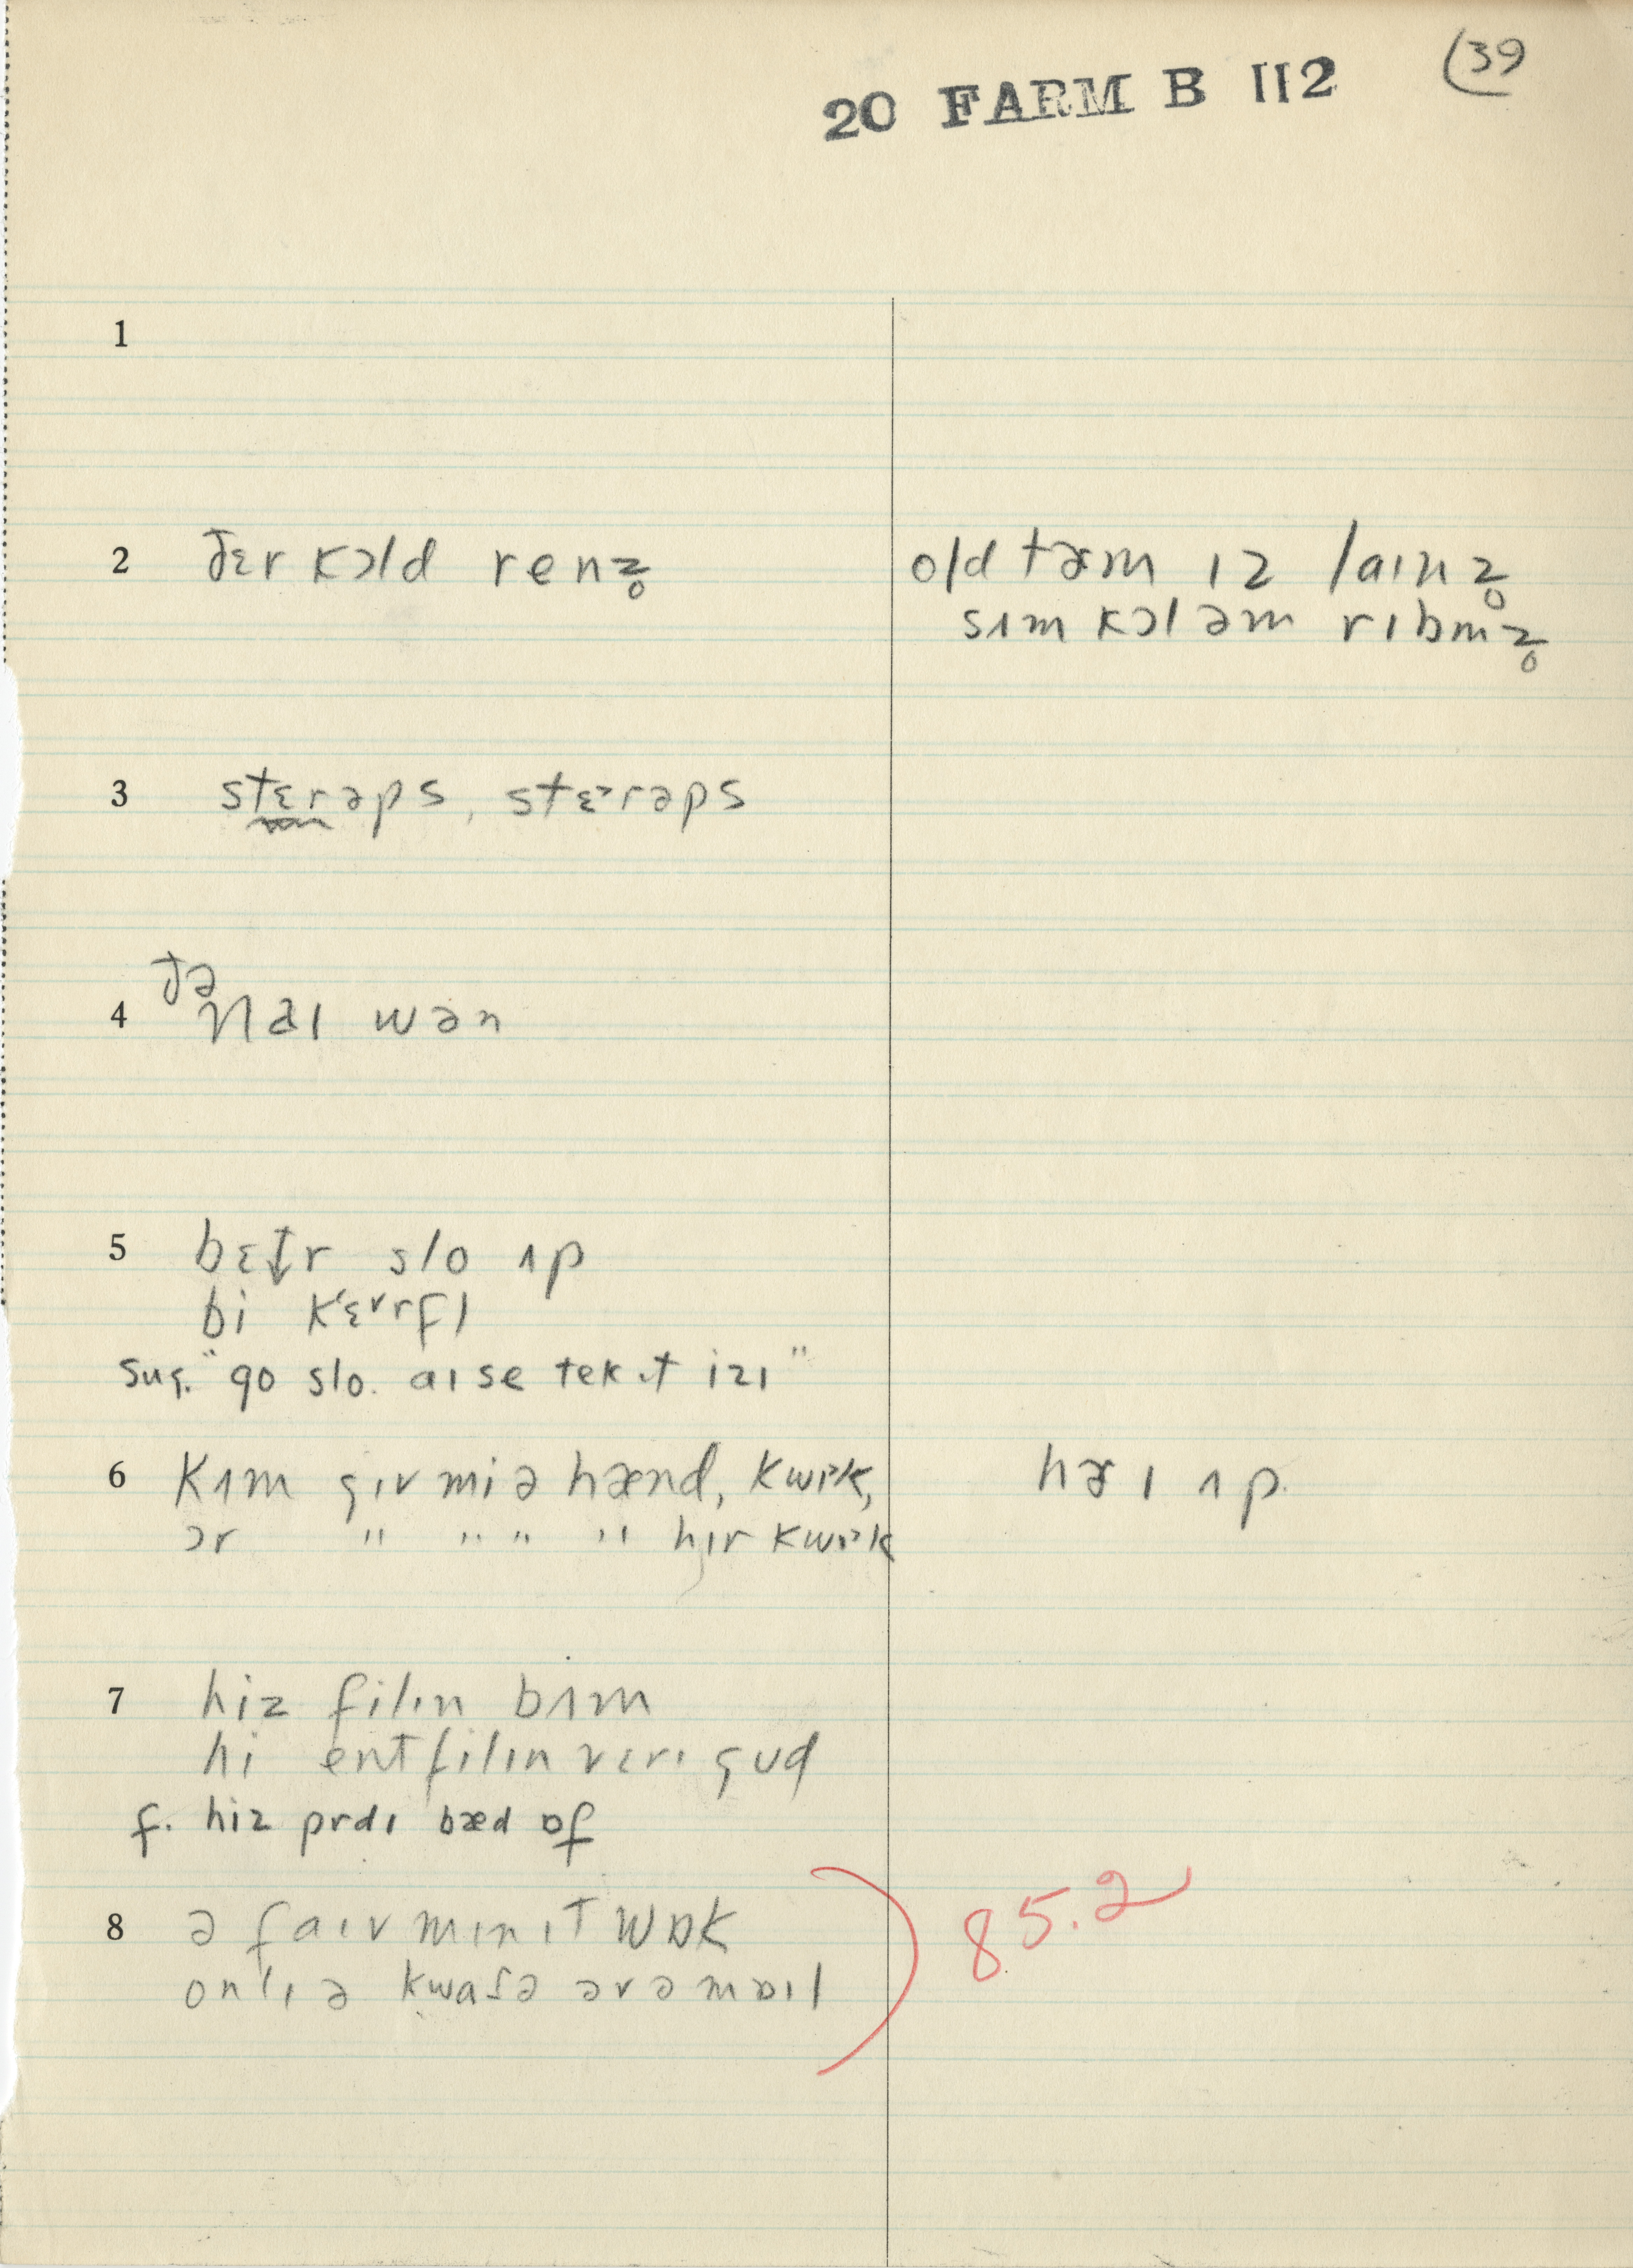 (39
20 FARM B 112
1
2 ðɛr kɔld renz̥
old tɑm ɪz laɪnz̥
sʌm kɔl əm rɪbmz̥
3 stɛrəps, stɛ˃rəps
4 ðə
naɪ wən
5 bɛt̬r slo ʌp
bi kɛ˅rfl
sug. "go slo. aɪ se tek ɪt izɪ"
6 kʌm gɪv mi ə hænd, kwɪ˃k,
hɑɪ ʌp.
ɔr " " " " hɪr kwɪ˃k
7 hiz filɪn bʌm
hi ent filɪn vɛrɪ gud
f. hiz prdɪ bæd ɒf
8 ə faɪv mɪnɪt wɒk
onlɪ ə kwatə əv ə mɒɪl
85.2